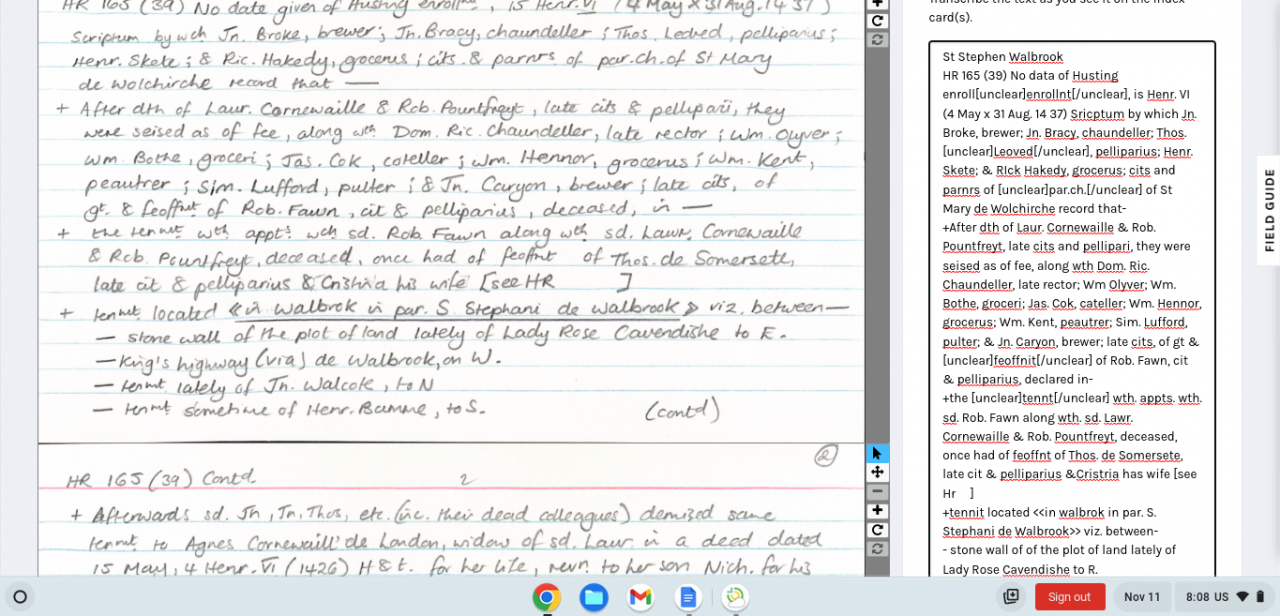 HR 165 (39) No date given of Husting enrollt, 15 Henr. VI (4 May x 31 Aug. 1437)
Scriptum by wch Jn. Broke, brewer; Jn. Bracy, chaundeller; Thos. Ledred, pelliparius;
Henr. Skete; & Ric. Hakedy, grocerus; cits. & parnrs of par.ch. of St Mary
de Wolchirche record that —
+ After dth of Laur. Cornewaille & Rob. Pountfreyt, late cits & pelliparii, they
were seised as of fee, along wth Dom. Ric. Chaundeller, late rector; Wm. Olyver;
Wm. Bothe, groceri; Jas. Cok, coteller; Wm. Hennor, grocerus; Wm. Kent,
peautrer; Sim. Lufford, pulter; & Jn. Caryon, brewer; late cits, of
gt. & feoffmt of Rob. Fawn, cit & pelliparius, deceased, in —
+ the tenmt wth appts wch sd. Rob. Fawn along wth sd. Laur. Cornewaille
& Rob. Pountfreyt, deceased, once had of feoffmt of Thos. de Somersete,
late cit & pelliparius & Cristria his wife [see HR ]
+ tenmt located «in Walbrok in par. S. Stephani de Walbrook» viz. between—
— stone wall of the plot of land lately of Lady Rose Cavendishe to E.
— King's highway (via) de Walbrook, on W.
— tenmt lately of Jn. Walcok, to N
— tenmt sometime of Henr. Bamme, to S. (contd)
2
HR 165 (39) Contd. 2
+ Afterwards sd. Jn, Jn, Thos, etc. (inc. their dead colleagues) demized same
tenmt to Agnes Cornewaill' de London, widow of sd. Laur. in a deed dated
15 May, 4 Henr. VI (1426) H & t. for her life, revn. to her son Nich. for his
Transcribe the text as you see it on the index
card(s).
St Stephen Walbrook
HR 165 (39) No data of Husting
enroll[unclear]enrollnt[/unclear], is Henr. VI
(4 May x 31 Aug. 14 37) Sricptum by which Jn.
Broke, brewer; Jn. Bracy, chaundeller; Thos.
[unclear]Leoved[/unclear], pelliparius; Henr.
Skete; & RIck Hakedy, grocerus; cits and
parnrs of [unclear]par.ch.[/unclear] of St
Mary de Wolchirche record that-
+After dth of Laur. Cornewaille & Rob.
Pountfreyt, late cits and pellipari, they were
seised as of fee, along wth Dom. Ric.
Chaundeller, late rector; Wm Olyver; Wm.
Bothe, groceri; Jas. Cok, cateller; Wm. Hennor,
grocerus; Wm. Kent, peautrer; Sim. Lufford,
pulter; & Jn. Caryon, brewer; late cits, of gt &
[unclear]feoffnit[/unclear] of Rob. Fawn, cit
& pelliparius, declared in-
+the [unclear]tennt[/unclear] wth. appts. wth.
sd. Rob. Fawn along wth. sd. Lawr.
Cornewaille & Rob. Pountfreyt, deceased,
once had of feoffnt of Thos. de Somersete,
late cit & pelliparius &Cristria has wife [see
Hr ]
+tennit located <<in walbrok in par. S.
Stephani de Walbrook>> viz. between-
- stone wall of of the plot of land lately of
Lady Rose Cavendishe to R.
FIELD GUIDE
Sign out
Nov 11
8:08 US